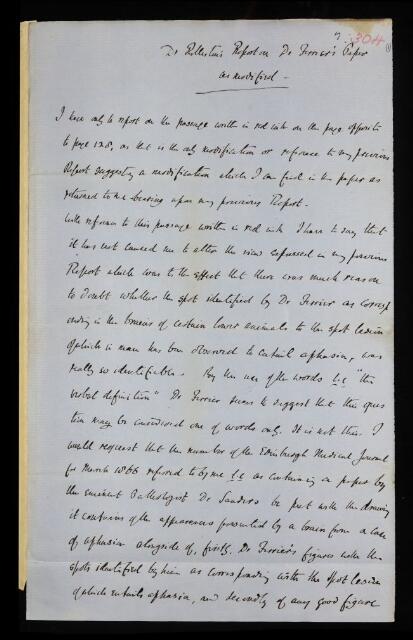 304
Dr Rolleston's Report on Dr Ferrier's Paper
as modified —
I have only to report on the passage written in red ink on the page opposite
to page 128, as that is the only modification or reference to my previous
Report suggesting a modification which I can find in the paper as
returned to me bearing upon my previous Report.
With reference to this passage written in red ink I have to say that
it has not caused me to alter the view expressed in my previous
Report which was to the effect that there was much reason
to doubt whether the spot identified by Dr Ferrier as corresp
onding in the brains of certain lower animals to the spot lesion
of which in man has been observed to entail aphasia, was
really so identifiable. By the use of the words l.c "the
verbal definition" Dr Ferrier seems to suggest that this ques
tion may be considered one of words only. It is not this. I
would request that the number of the Edinburgh Medical Journal
for March 1866 referred to by me l.c as containing a paper by
the eminent Pathologist Dr Sanders be put with the drawing
it contains of the appearances presented by a brain from a case
of aphasia alongside of, firstly, Dr Ferrier's figures with the
spots identified by him as corresponding with the spot lesion
of which entails aphasia, and secondly of any good figure